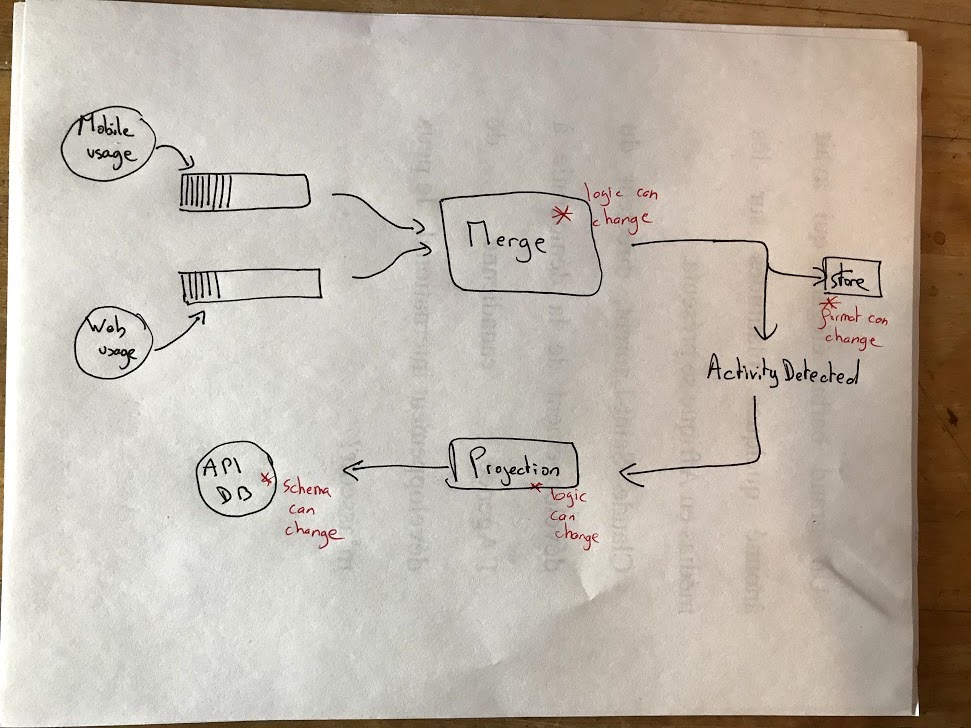 Mobile
usage
Web
usage
Merge
logic can
change
store
format can
change
Activity Detected
Projection
logic
can
change
API
DB
schema
can
change